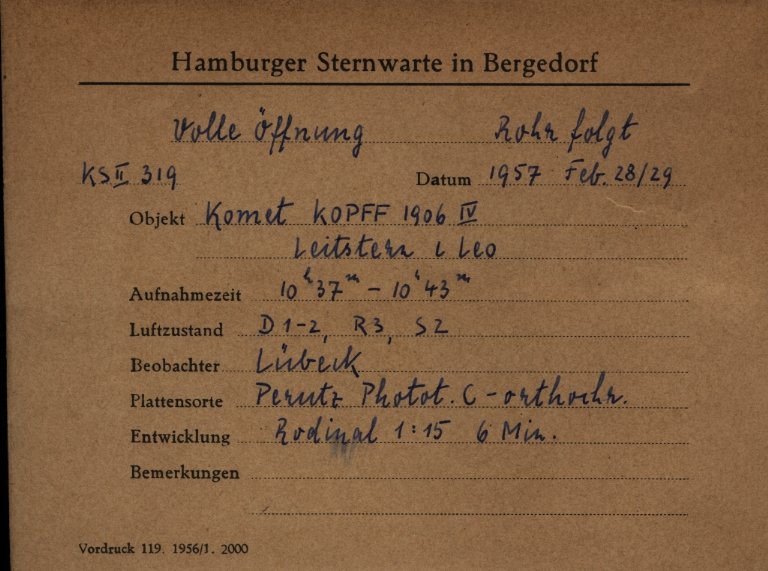 Hamburger Sternwarte in Bergedorf
Volle Öffnung Rohr folgt
KS II 319 Datum 1957 Feb. 28/29
Objekt Komet KOPFF 1906 IV
Leitstern ι Leo
Aufnahmezeit 10ʰ37ᵐ – 10ʰ43ᵐ
Luftzustand D 1-2, R3, S2
Beobachter Lübeck
Plattensorte Perutz Photot. C-orthochr.
Entwicklung Rodinal 1:15 6 Min.
Bemerkungen
Vordruck 119. 1956/1. 2000